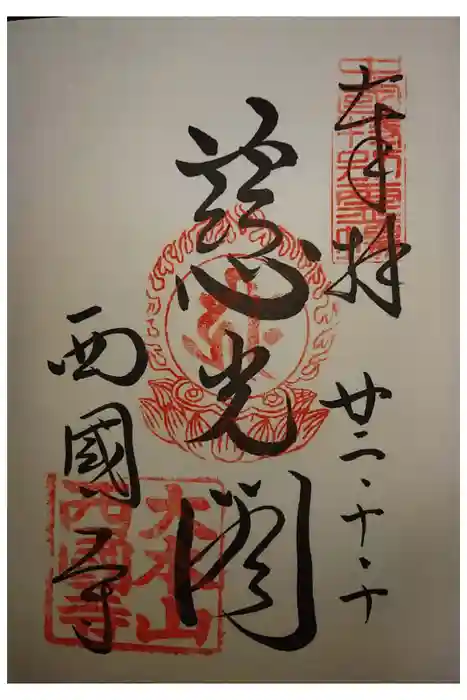 奉拝
廿二・十・十
慈光閣
西國寺
大本山
西國寺